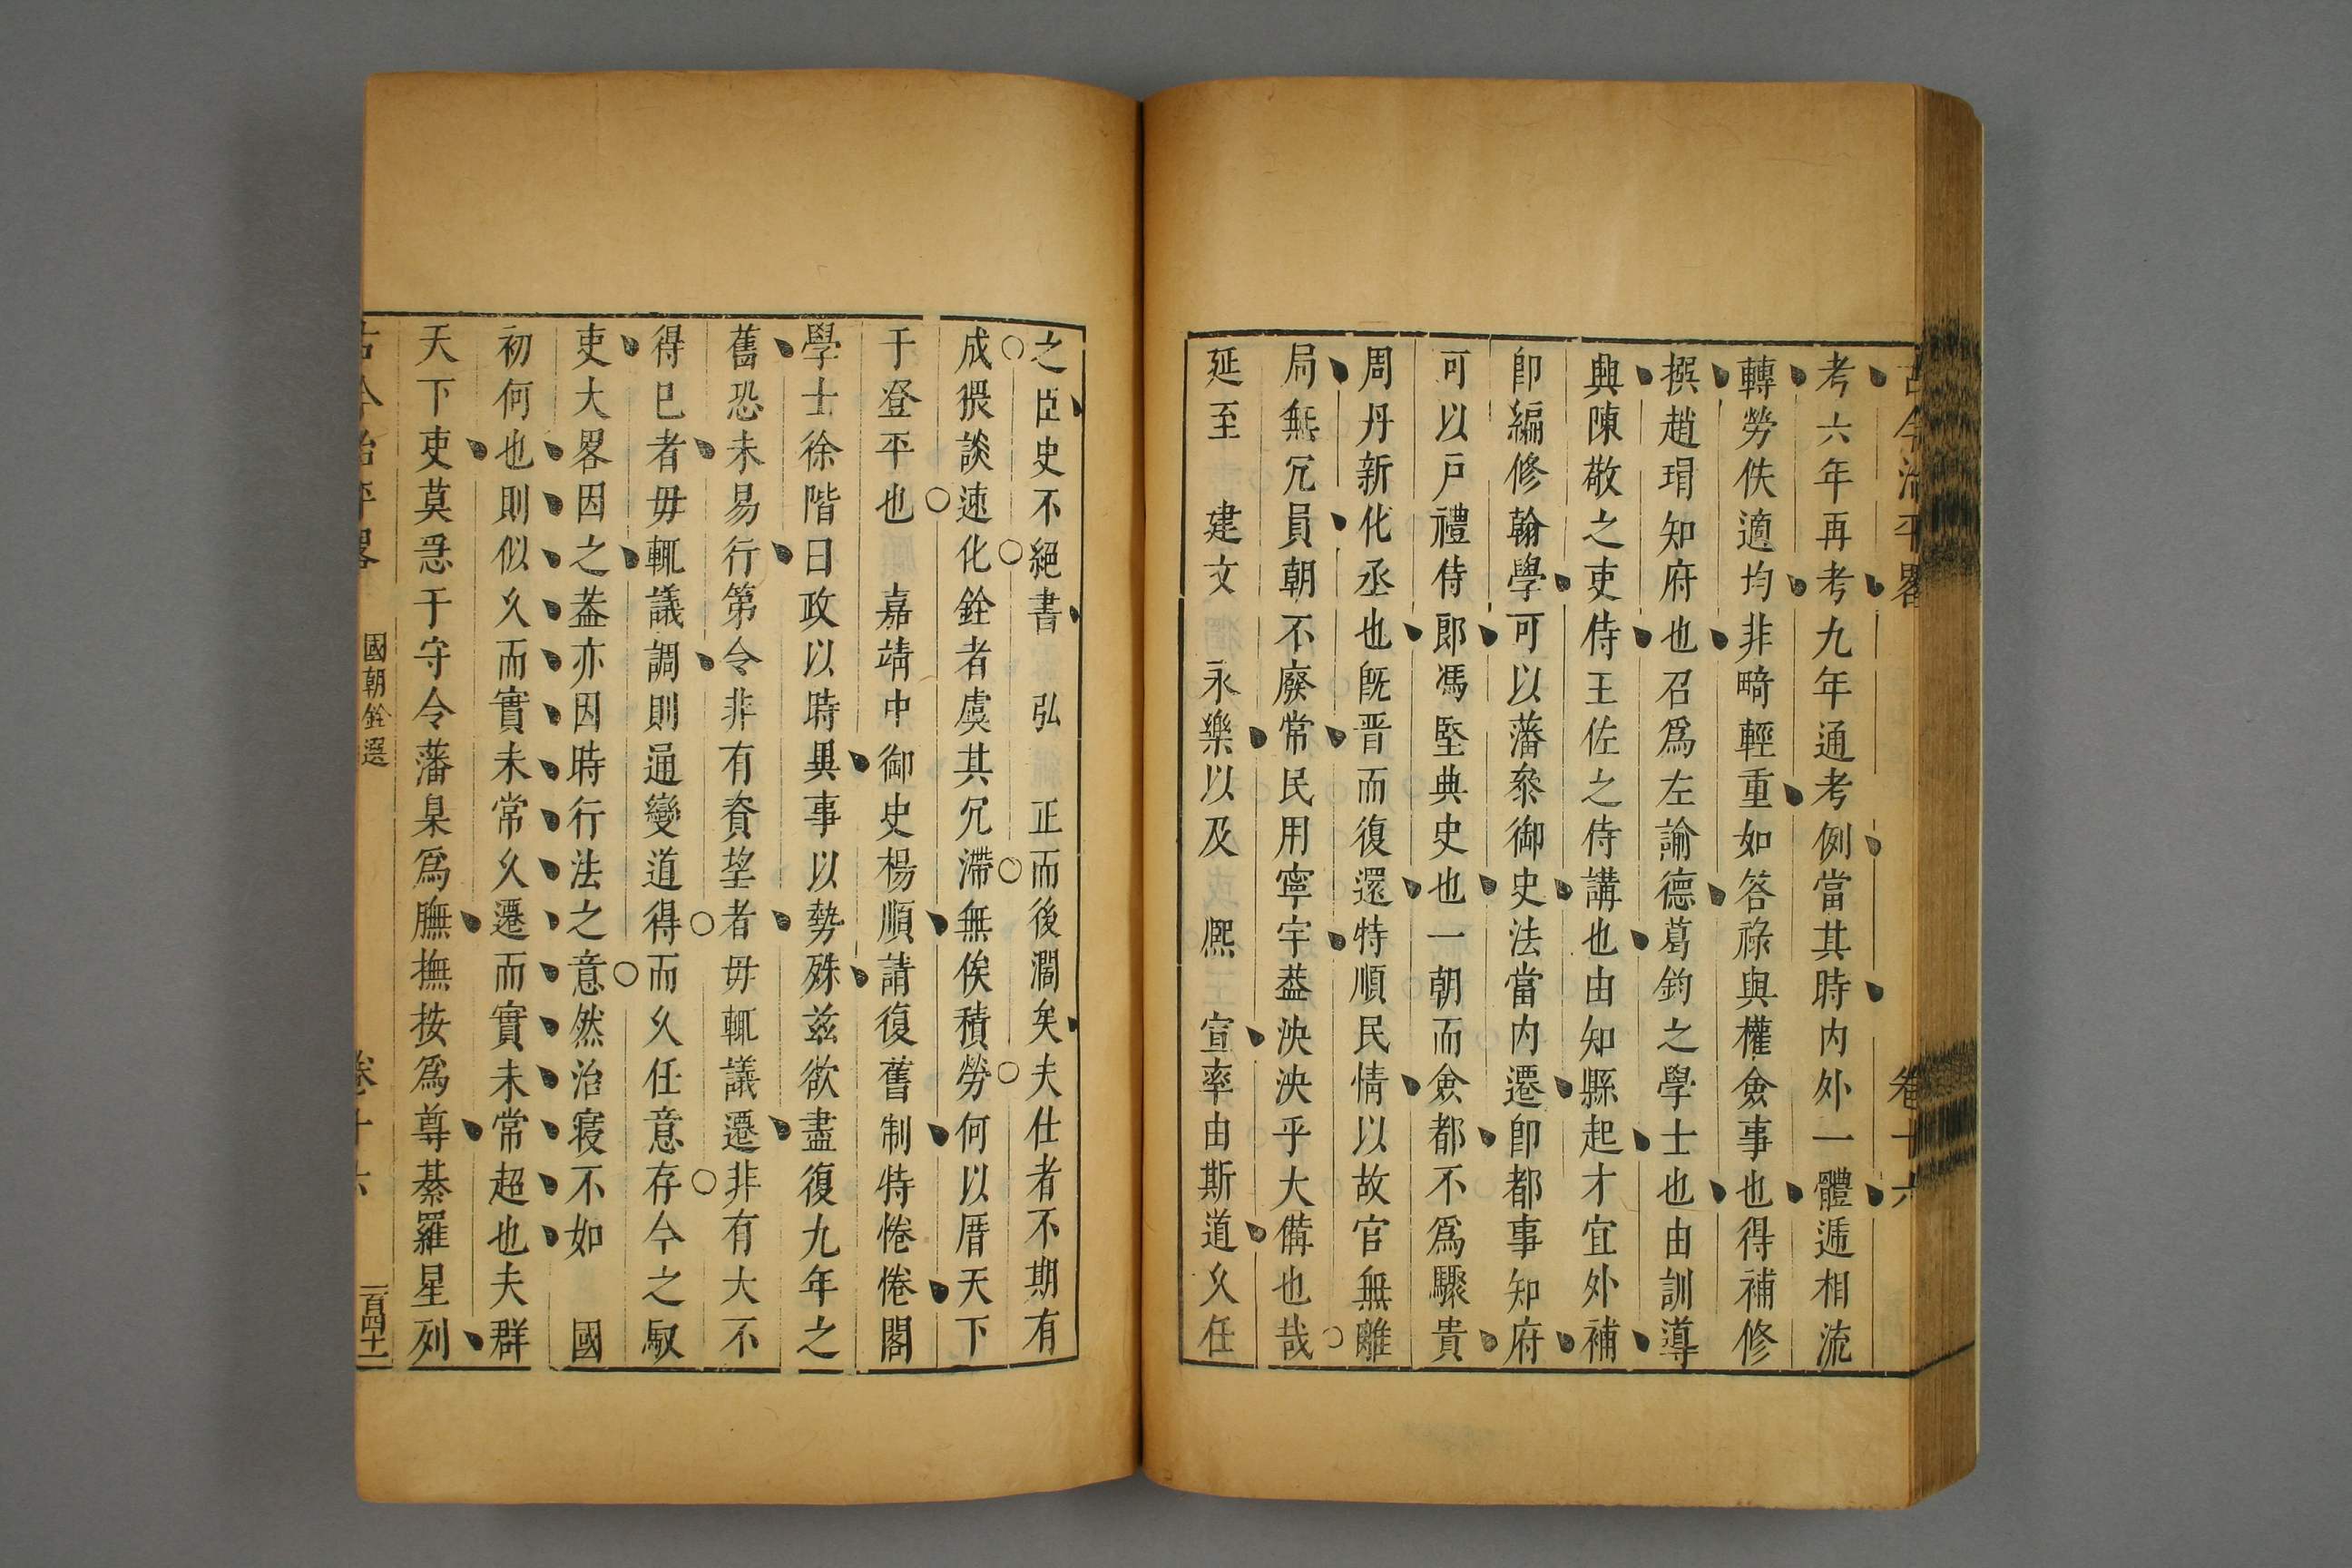 古今治平畧 卷十六
考六年再考九年通考例當其時内外一體遞相流
轉勞佚適均非畸輕重如答祿與權僉事也得補修
撰趙瑁知府也召爲左諭德葛鈞之學士也由訓導
興陳敬之吏侍王佐之侍講也由知縣起才宜外補
卽編修翰學可以藩叅御史法當内遷卽都事知府
可以戶禮侍郎馮堅典史也一朝而僉都不爲驟貴
周丹新化丞也旣晋而復還特順民情以故官無離
局無冗員朝不廢常民用寧宇葢泱泱乎大備也哉
延至 建文 永樂以及 熈 宣率由斯道乆任
之臣史不絕書 弘 正而後濶矣夫仕者不期有
成猥談速化銓者虞其冗滯無俟積勞何以厝天下
于登平也 嘉靖中御史楊順請復舊制特惓惓閣
學士徐階曰政以時異事以勢殊兹欲盡復九年之
舊恐未易行第令非有資望者毋輒議遷非有大不
得已者毋輒議調則通變道得而乆任意存今之馭
吏大畧因之葢亦因時行法之意然治寖不如 國
初何也則似乆而實未常乆遷而實未常超也夫群
天下吏莫急于守令藩臬爲膴撫按爲尊綦羅星列
古今治平畧 國朝銓選 卷十六 一百四十一